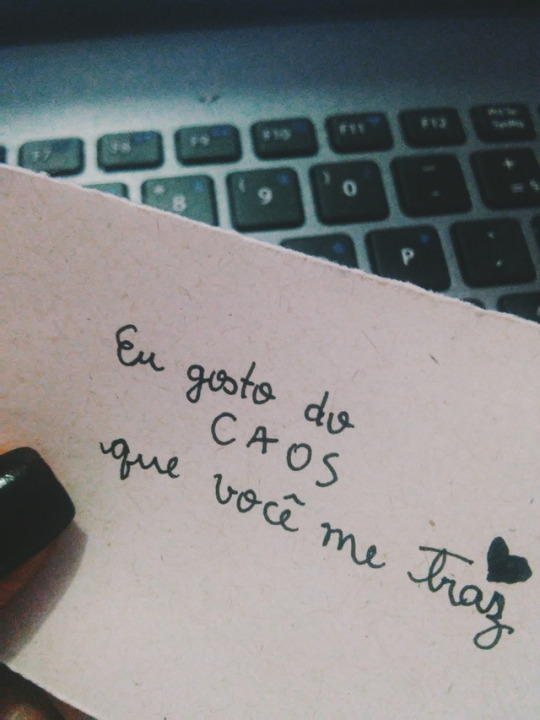 F7 F8 F9 F10 F11 F12
8 ( 9 ) 0 - + =
P
Eu gosto do
CAOS
que você me traz